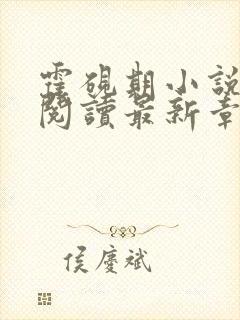 霍硯期小說
閱讀最新章
侯慶斌